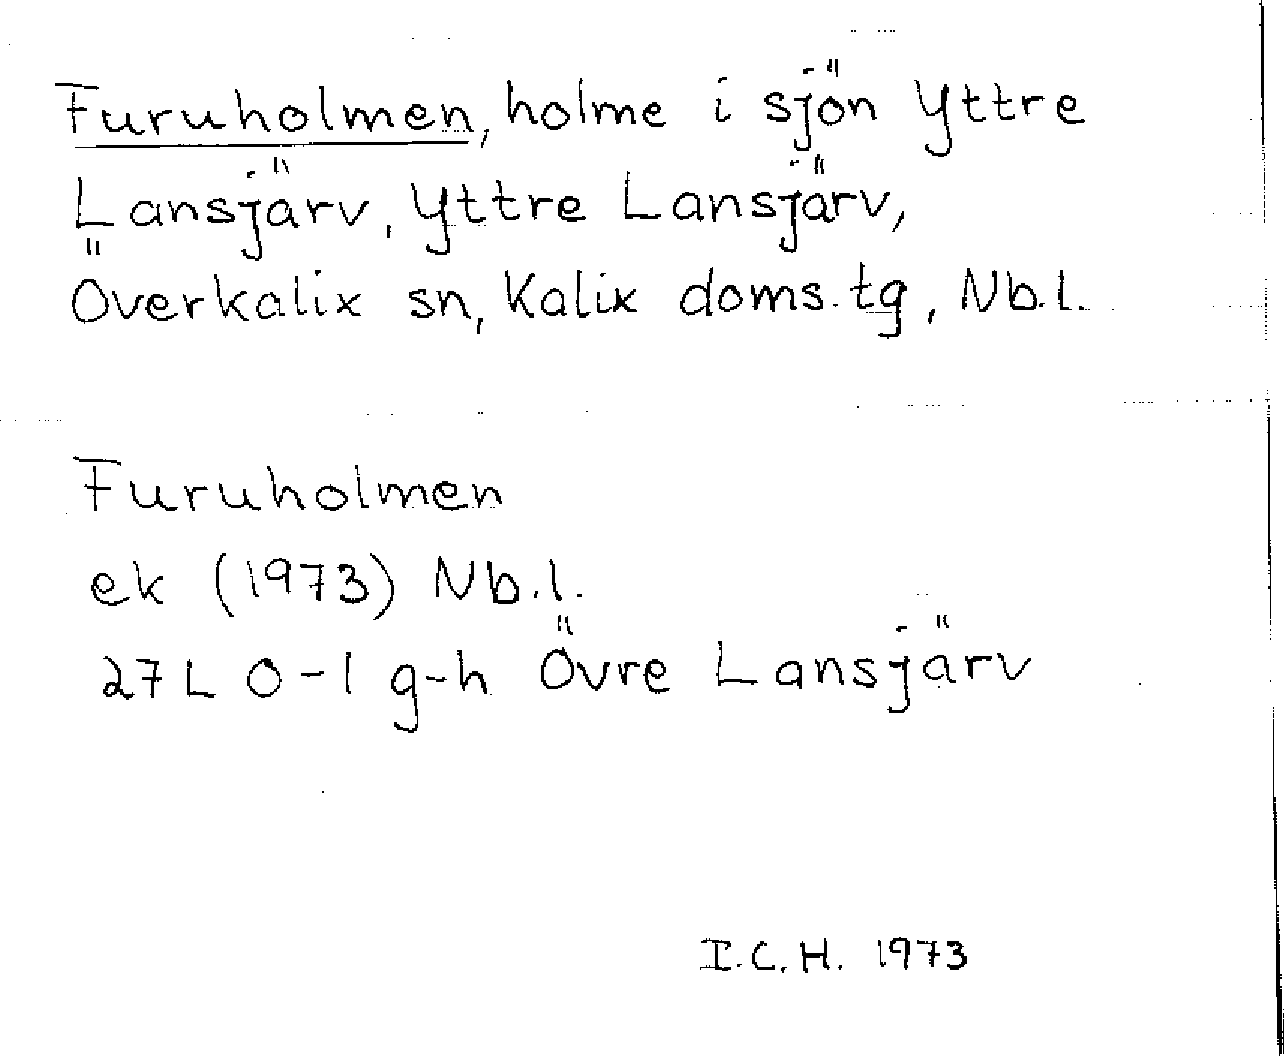 Furuholmen, holme i sjön Yttre
Lansjärv, Yttre Lansjärv,
Överkalix sn, Kalix doms.tg, Nb.l.
Furuholmen
ek (1973) Nb.l.
27L 0-1 g-h Övre Lansjärv
I.C.H. 1973